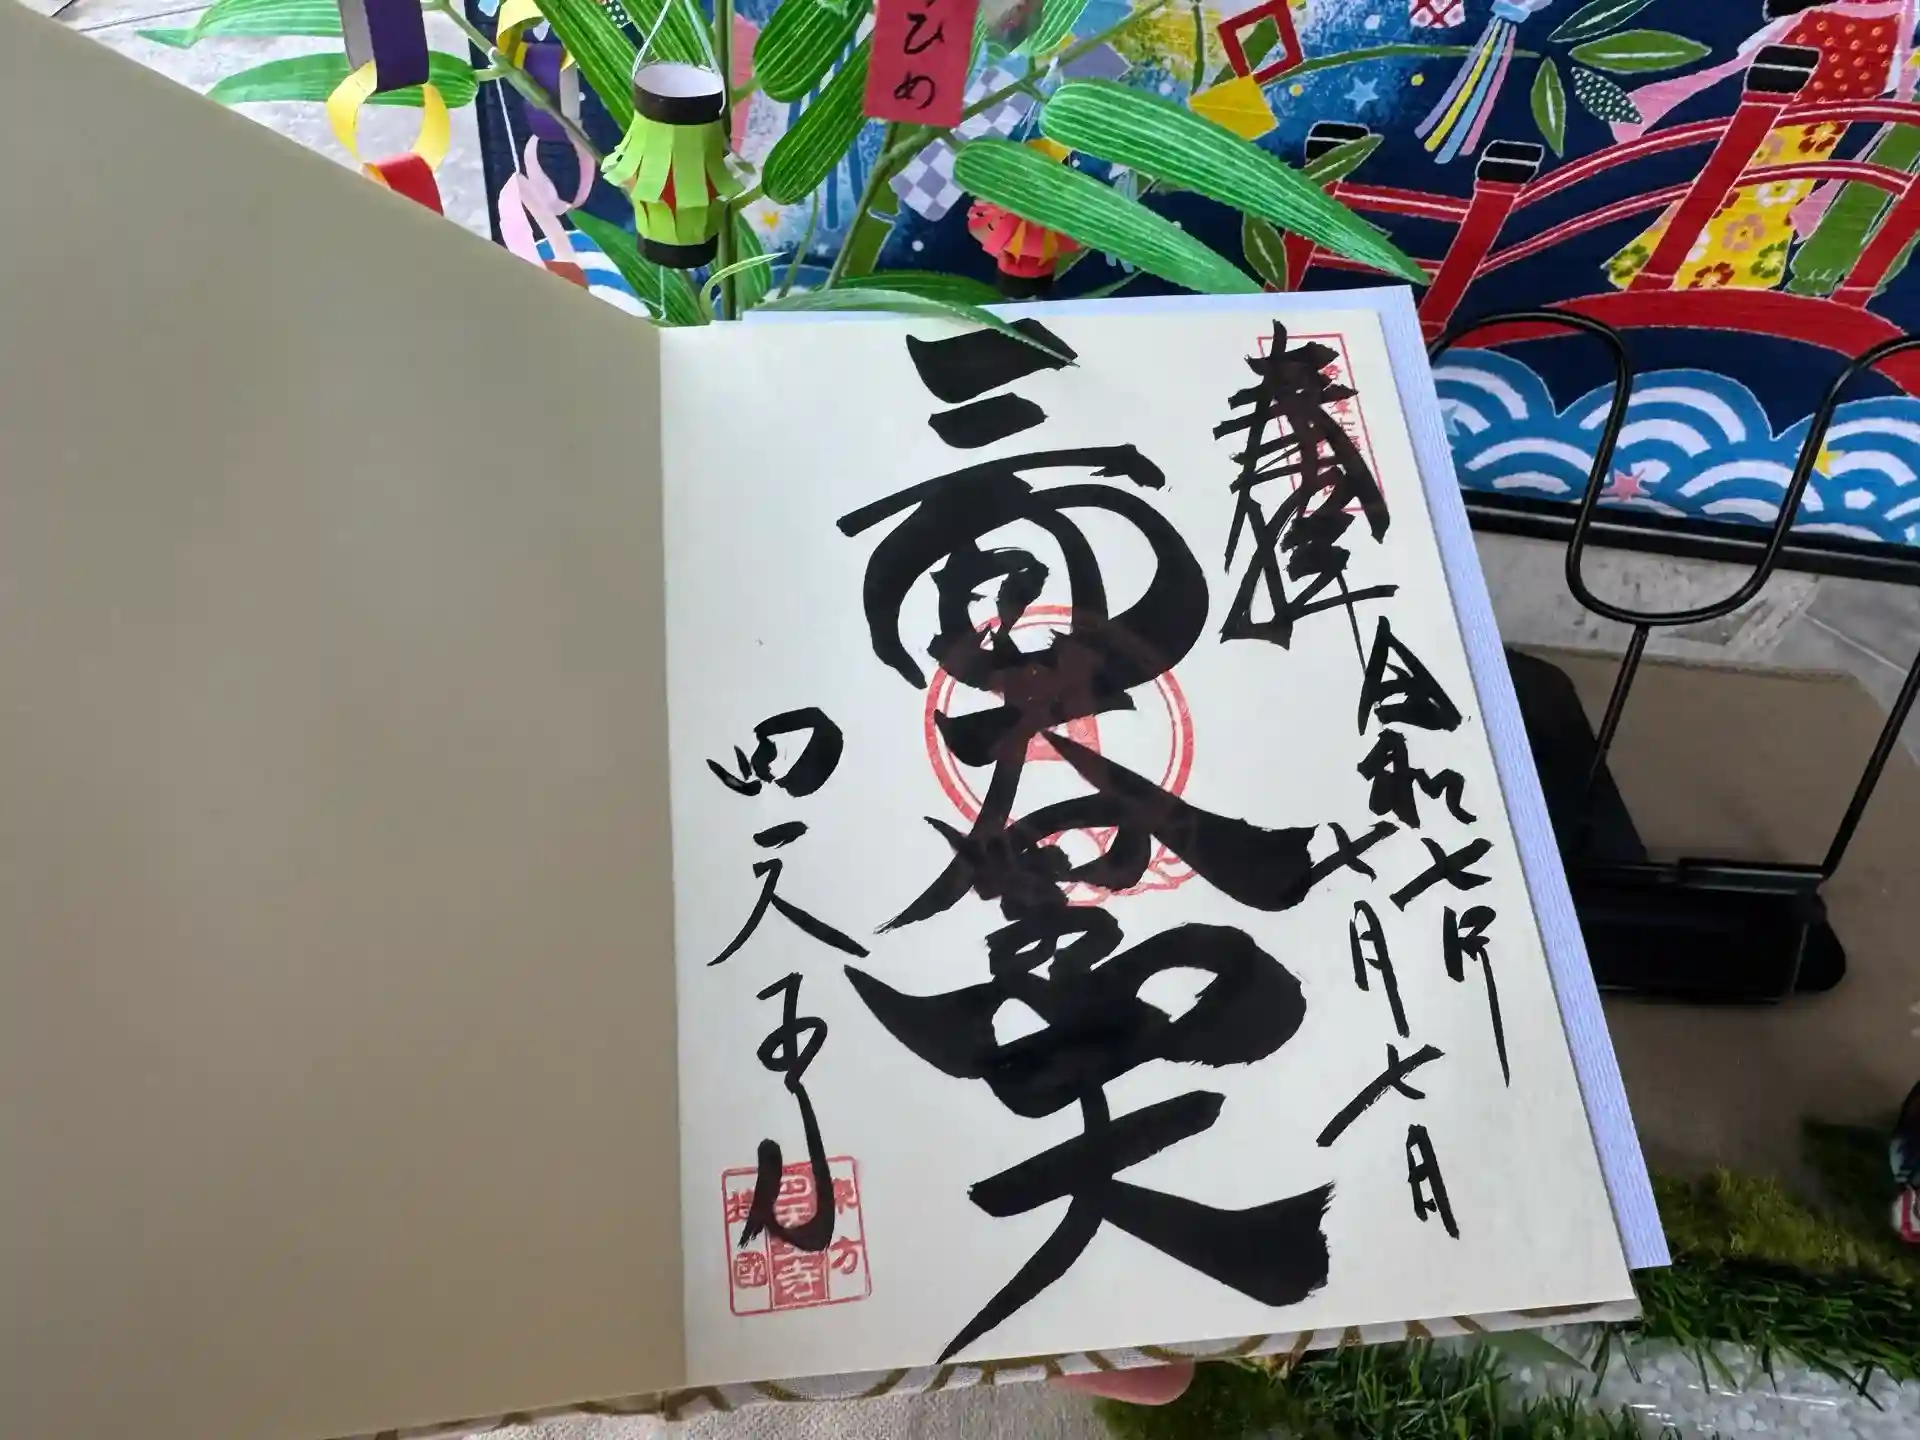 ひめ
奉拝
令和七年
七月七日
三面大黒天
四天王寺
東方
四天王寺
持國